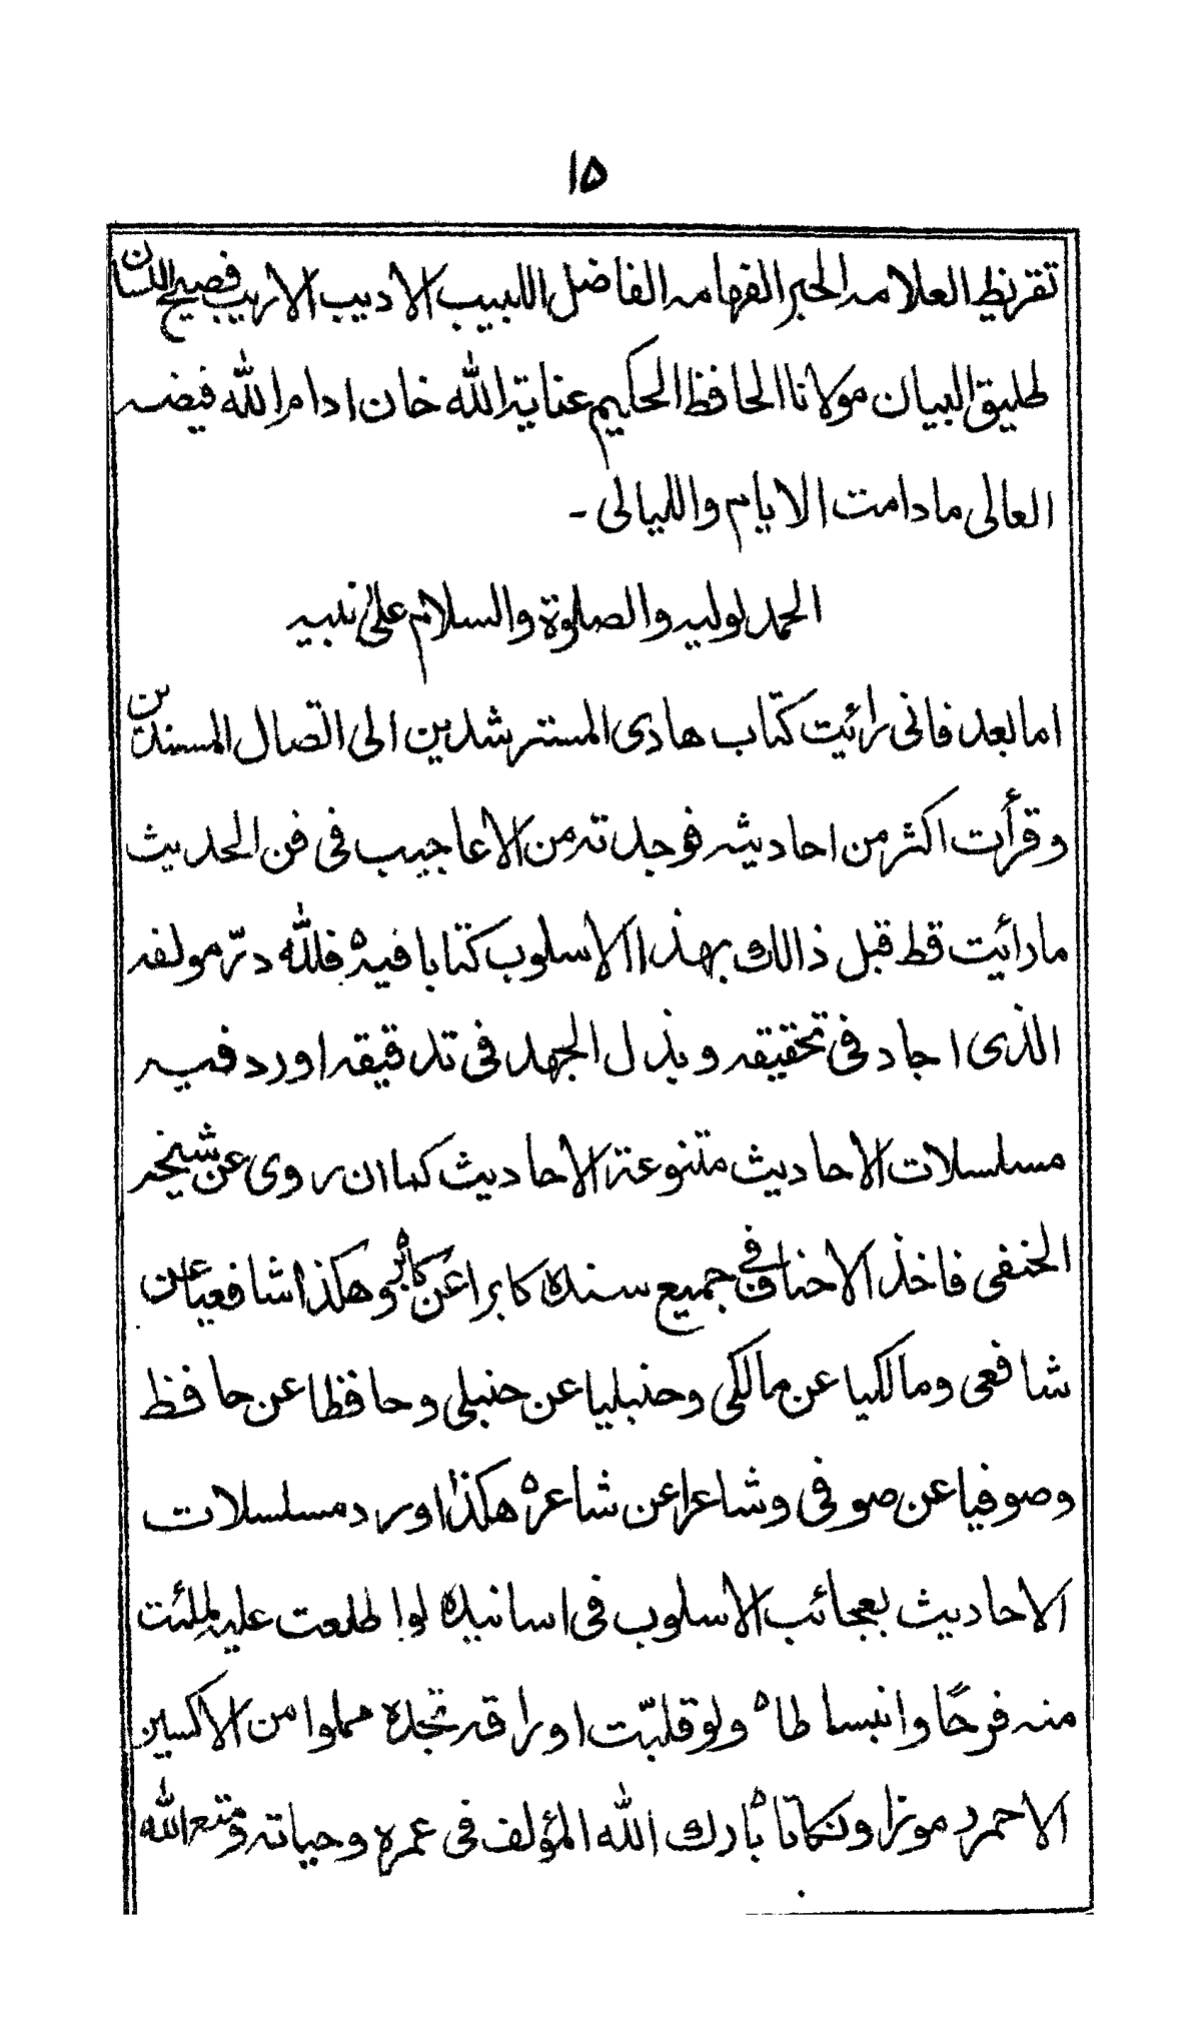 ۱۵
تقريظ العلامه الحبر الفهامه الفاضل اللبيب الاديب الاريب فصيح اللسان
طليق البيان مولانا الحافظ الحكيم عناية الله خان ادام الله فيضه
العالى مادامت الايام والليالى ـ
الحمد لوليه والصلوة والسلام على نبيه
اما بعد فانى رائيت كتاب هادى المسترشدين الى اتصال المسندين
وقرأت اكثر من احاديثه فوجدته من الاعاجيب فى فن الحديث
مارائيت قط قبل ذالك بهذا الاسلوب كتابا فيه فلله درّ مولفه
الذى اجاد فى تحقيقه وبذل الجهد فى تدقيقه اورد فيه
مسلسلات الاحاديث متنوعة الاحاديث كما ان روى عن شيخه
الحنفى فاخذ الاحناف فى جميع سنده كابرا عن كابر وهكذا شافعيا عن
شافعى ومالكيا عن مالكى وحنبليا عن حنبلى وحافظا عن حافظ
وصوفيا عن صوفى وشاعرا عن شاعر هكذا اورد مسلسلات
الاحاديث بعجائب الاسلوب فى اسانيده لو اطلعت عليه لملئت
منه فرحًا وانبساطا ولو قلبّت اوراقه تجده مملوا من الاكسير
الاحمر رموزا ونكاتا بارك الله المؤلف فى عمره وحياته ومتع الله